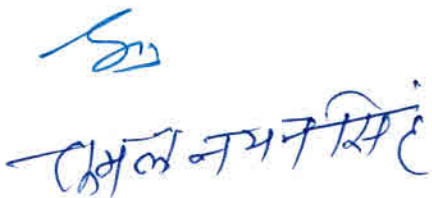 कमल नयन सिंह